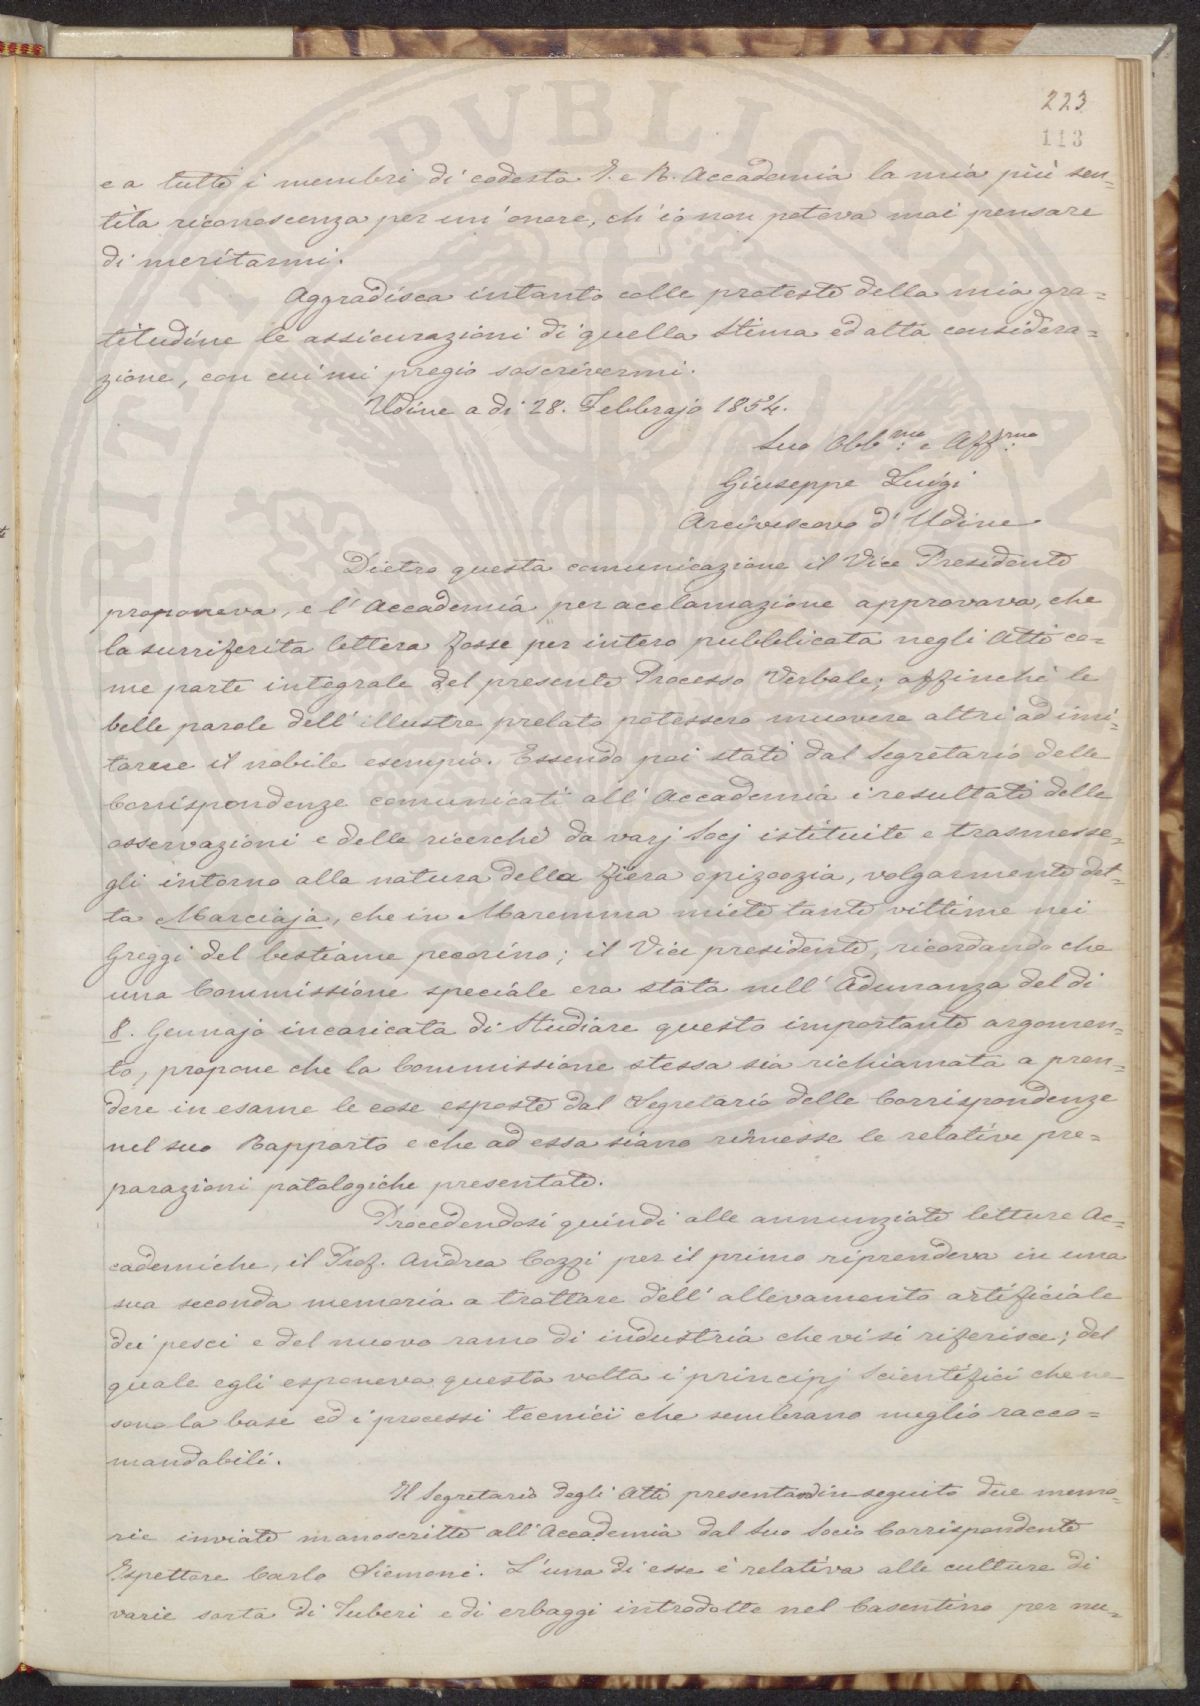 PVBLICAE
VTILITATI
223
113
e a tutti i membri di codesta I. e R. Accademia la mia più sen-
tita riconoscenza per un' onore, ch' io non poteva mai pensare
di meritarmi.
Aggradisca intanto colle proteste della mia gra=
titudine le assicurazioni di quella stima ed alta considera=
zione, con cui mi pregio soscrivermi.
Udine a dì 28. Febbrajo 1854.
Suo Obb:mo e Aff:mo
Giuseppe Luigi
Arcivescovo d' Udine
Dietro questa comunicazione il Vice Presidente
proponeva, e l' Accademia per acclamazione approvava, che
la surriferita lettera fosse per intero pubblicata negli Atti co-
me parte integrale del presente Processo Verbale; affinchè le
belle parole dell' illustre prelato potessero muovere altri ad imi-
tarne il nobile esempio. Essendo poi stati dal Segretario delle
Corrispondenze comunicati all' Accademia i resultati delle
osservazioni e delle ricerche da varj Socj istituite e trasmesse-
gli intorno alla natura della fiera epizoozia, volgarmente det-
ta Marciaja, che in Maremma miete tante vittime nei
Greggi del bestiame pecorino; il Vice presidente, ricordando che
una Commissione speciale era stata nell' Adunanza del dì
8. Gennajo incaricata di studiare questo importante argomen-
to, propone che la Commissione stessa sia richiamata a pren-
dere in esame le cose esposte dal Segretario delle Corrispondenze
nel suo Rapporto e che ad essa siano rimesse le relative pre=
parazioni patologiche presentate.
Procedendosi quindi alle annunziate letture Ac=
cademiche, il Prof. Andrea Cozzi per il primo riprendeva in una
sua seconda memoria a trattare dell' allevamento artificiale
dei pesci e del nuovo ramo di industria che vi si riferisce; del
quale egli esponeva questa volta i principj scientifici che ne
sono la base ed i processi tecnici che sembrano meglio racco=
mandabili.
Il Segretario degli Atti presentando in seguito due memo-
rie inviate manoscritte all' Accademia dal Suo Socio Corrispondente
Ispettore Carlo Siemoni. L' una di esse è relativa alle culture di
varie sorta di Tuberi e di erbaggi introdotte nel Casentino per nu-